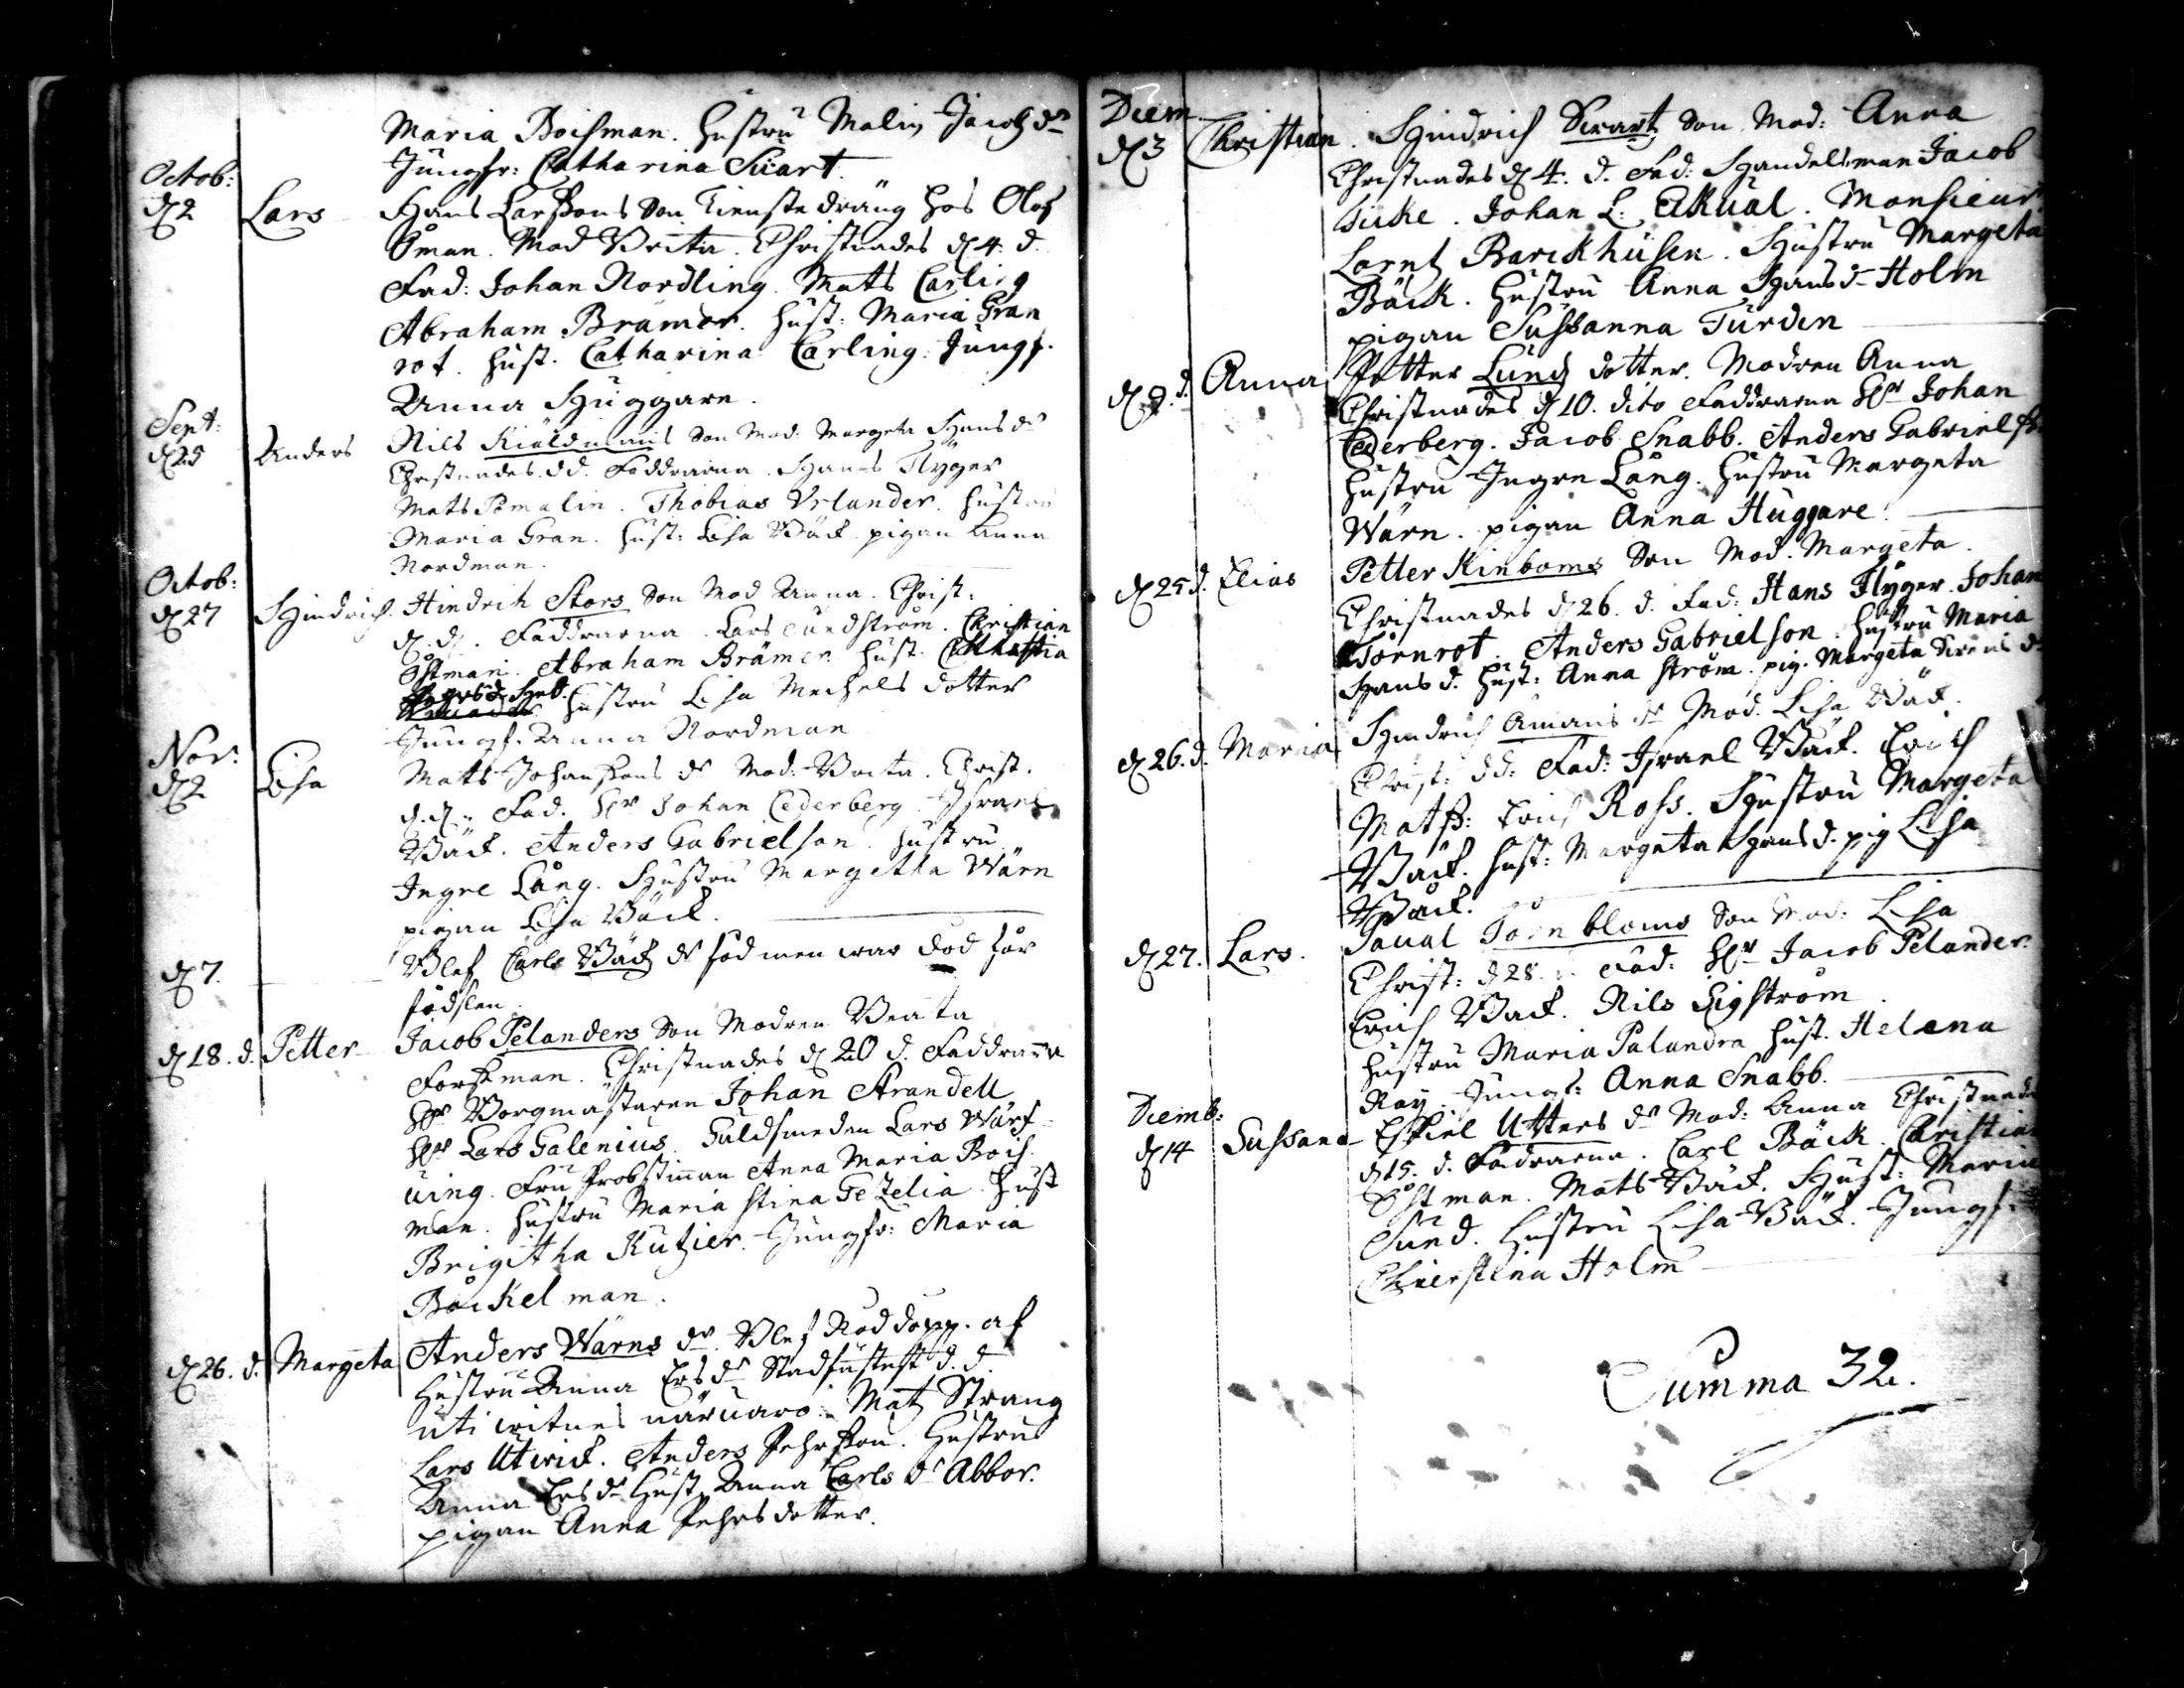 Maria Boisman. Hustru Malin Jacobs dr
Jungfr: Catharina Suart.
Octob:
d 2 Lars Hans Larssons Son Tienstedräng hos Olof
Öman. Mod Brita. Christnades d 4. d.
Fad: Johan Nordling. Mats Carling
Abraham Brämer. Hust: Maria Gran
rot. Hust. Catharina Carling. Jungf.
Anna Huggare.
Sept:
d 25 Anders Nils Kiäldmans Son Mod: Margeta Hans dr
Christnades. d d. Faddrarna. Hans Flyger
Mats Pomalin. Thobias Urlander. Hustru
Maria Gran. Hust: Lisa Bäck pigan Anna
Nordman.
Octob:
d 27 Hindrich. Hindrik Stors Son Mod Anna. Christ:
d. d. Faddrarna. Lars Sundström. Christian
Östman. Abraham Brämer. Hust.
Hustru Lisa Mechels dotter
Jungf. Anna Nordman
Nov:
d 2 Lisa Mats Johanssons dr Mod: Brita. Christ.
d. d. Fad. Hr Johan Cederberg. Israel
Bäck. Anders Gabrielson. Hustru
Ingre Lång. Hustru Margetha Wärn
pigan Lisa Bäck.
d 7. Olof Carls Bäck dr född men war död för
födslen.
d 18. d. Petter Jacob Pelanders Son Modren Beata
Forssman. Christnades d 20 d. Faddrarna
Hr Borgmästaren Johan Strandell
Hr Lars Galenius. Guldsmeden Lars Wärf-
uing. Fru Probstinnan Anna Maria Bois-
man. Hustru Maria Stina Gezelia. Hust
Brigitha Kutzier. Jungfr: Maria
Böckelman.
d 26. d. Margeta Anders Wärns dr. Blef Nöddöpp. af
Hustru Anna Ers dr Stadfästest d. d.
uti witnes närvaro: Mats Strang
Lars Utwick. Anders Pehrsson. Hustru
Anna Ers dr Hust. Anna Carls dr Abbor.
pigan Anna Pehrs dotter.
Diem
d 3 Christian. Hindrich Swart Son Mod: Anna
Christnades d 4. d. Fad: Handelsman Jacob
Sucke. Johan L: Ekual. Monsieur
Larntz Barckhusen. Hustru Margeta
Bäck. Hustru Anna Hans dr Holm
pigan Sussanna Turdin
d 9. d. Anna Petter Lund dotter. Modren Anna
Christnades d 10. dito Faddrarna Hr Johan
Cederberg. Jacob Snabb. Anders Gabrielss:
Hustru Ingre Lång. Hustru Margeta
Wärn. pigan Anna Huggare.
d 25 d. Elias Petter Kinboms Son Mod. Margeta.
Christnades d 26. d. Fad: Hans Flyger. Johan
Törnrot. Anders Gabrielson. Hustru Maria
Hans d. Hust: Anna Ström. pig. Margeta
d 26. d. Maria Hindrich Amans dr Mod. Lisa Bäck.
Christ: d d: Fad: Israel Bäck. Erich
Matss: Erich Ross. Hustru Margeta
Bäck. Hust: Margeta Hans d. pig Lisa
Bäck.
d 27. Lars. Paual Törnbloms Son Mod: Lisa
Christ: d 28. Fad: Hr Jacob Pelander.
Erich Back. Nils Sigström.
Hustru Maria Palandra Hust. Helena
Roy. Jungf: Anna Snabb.
Diemb:
d 14 Sussana Eskiel Utters dr Mod: Anna Christnades
d 15. d. Fadrarna. Carl Bäck. Christian
Östman. Mats Bäck. Hust: Maria
Sund. Hustru Lisa Bäck. Jungf:
Chierstina Holm
Summa 32.